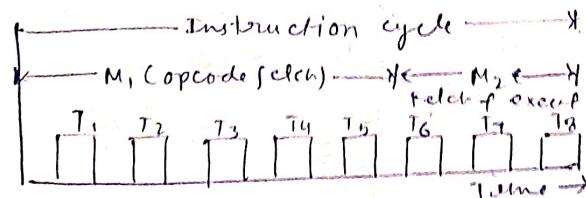 Instruction cycle
M₁ (opcode fetch) M₂
fetch & execut
T₁ T₂ T₃ T₄ T₅ T₆ T₇ T₈
Time